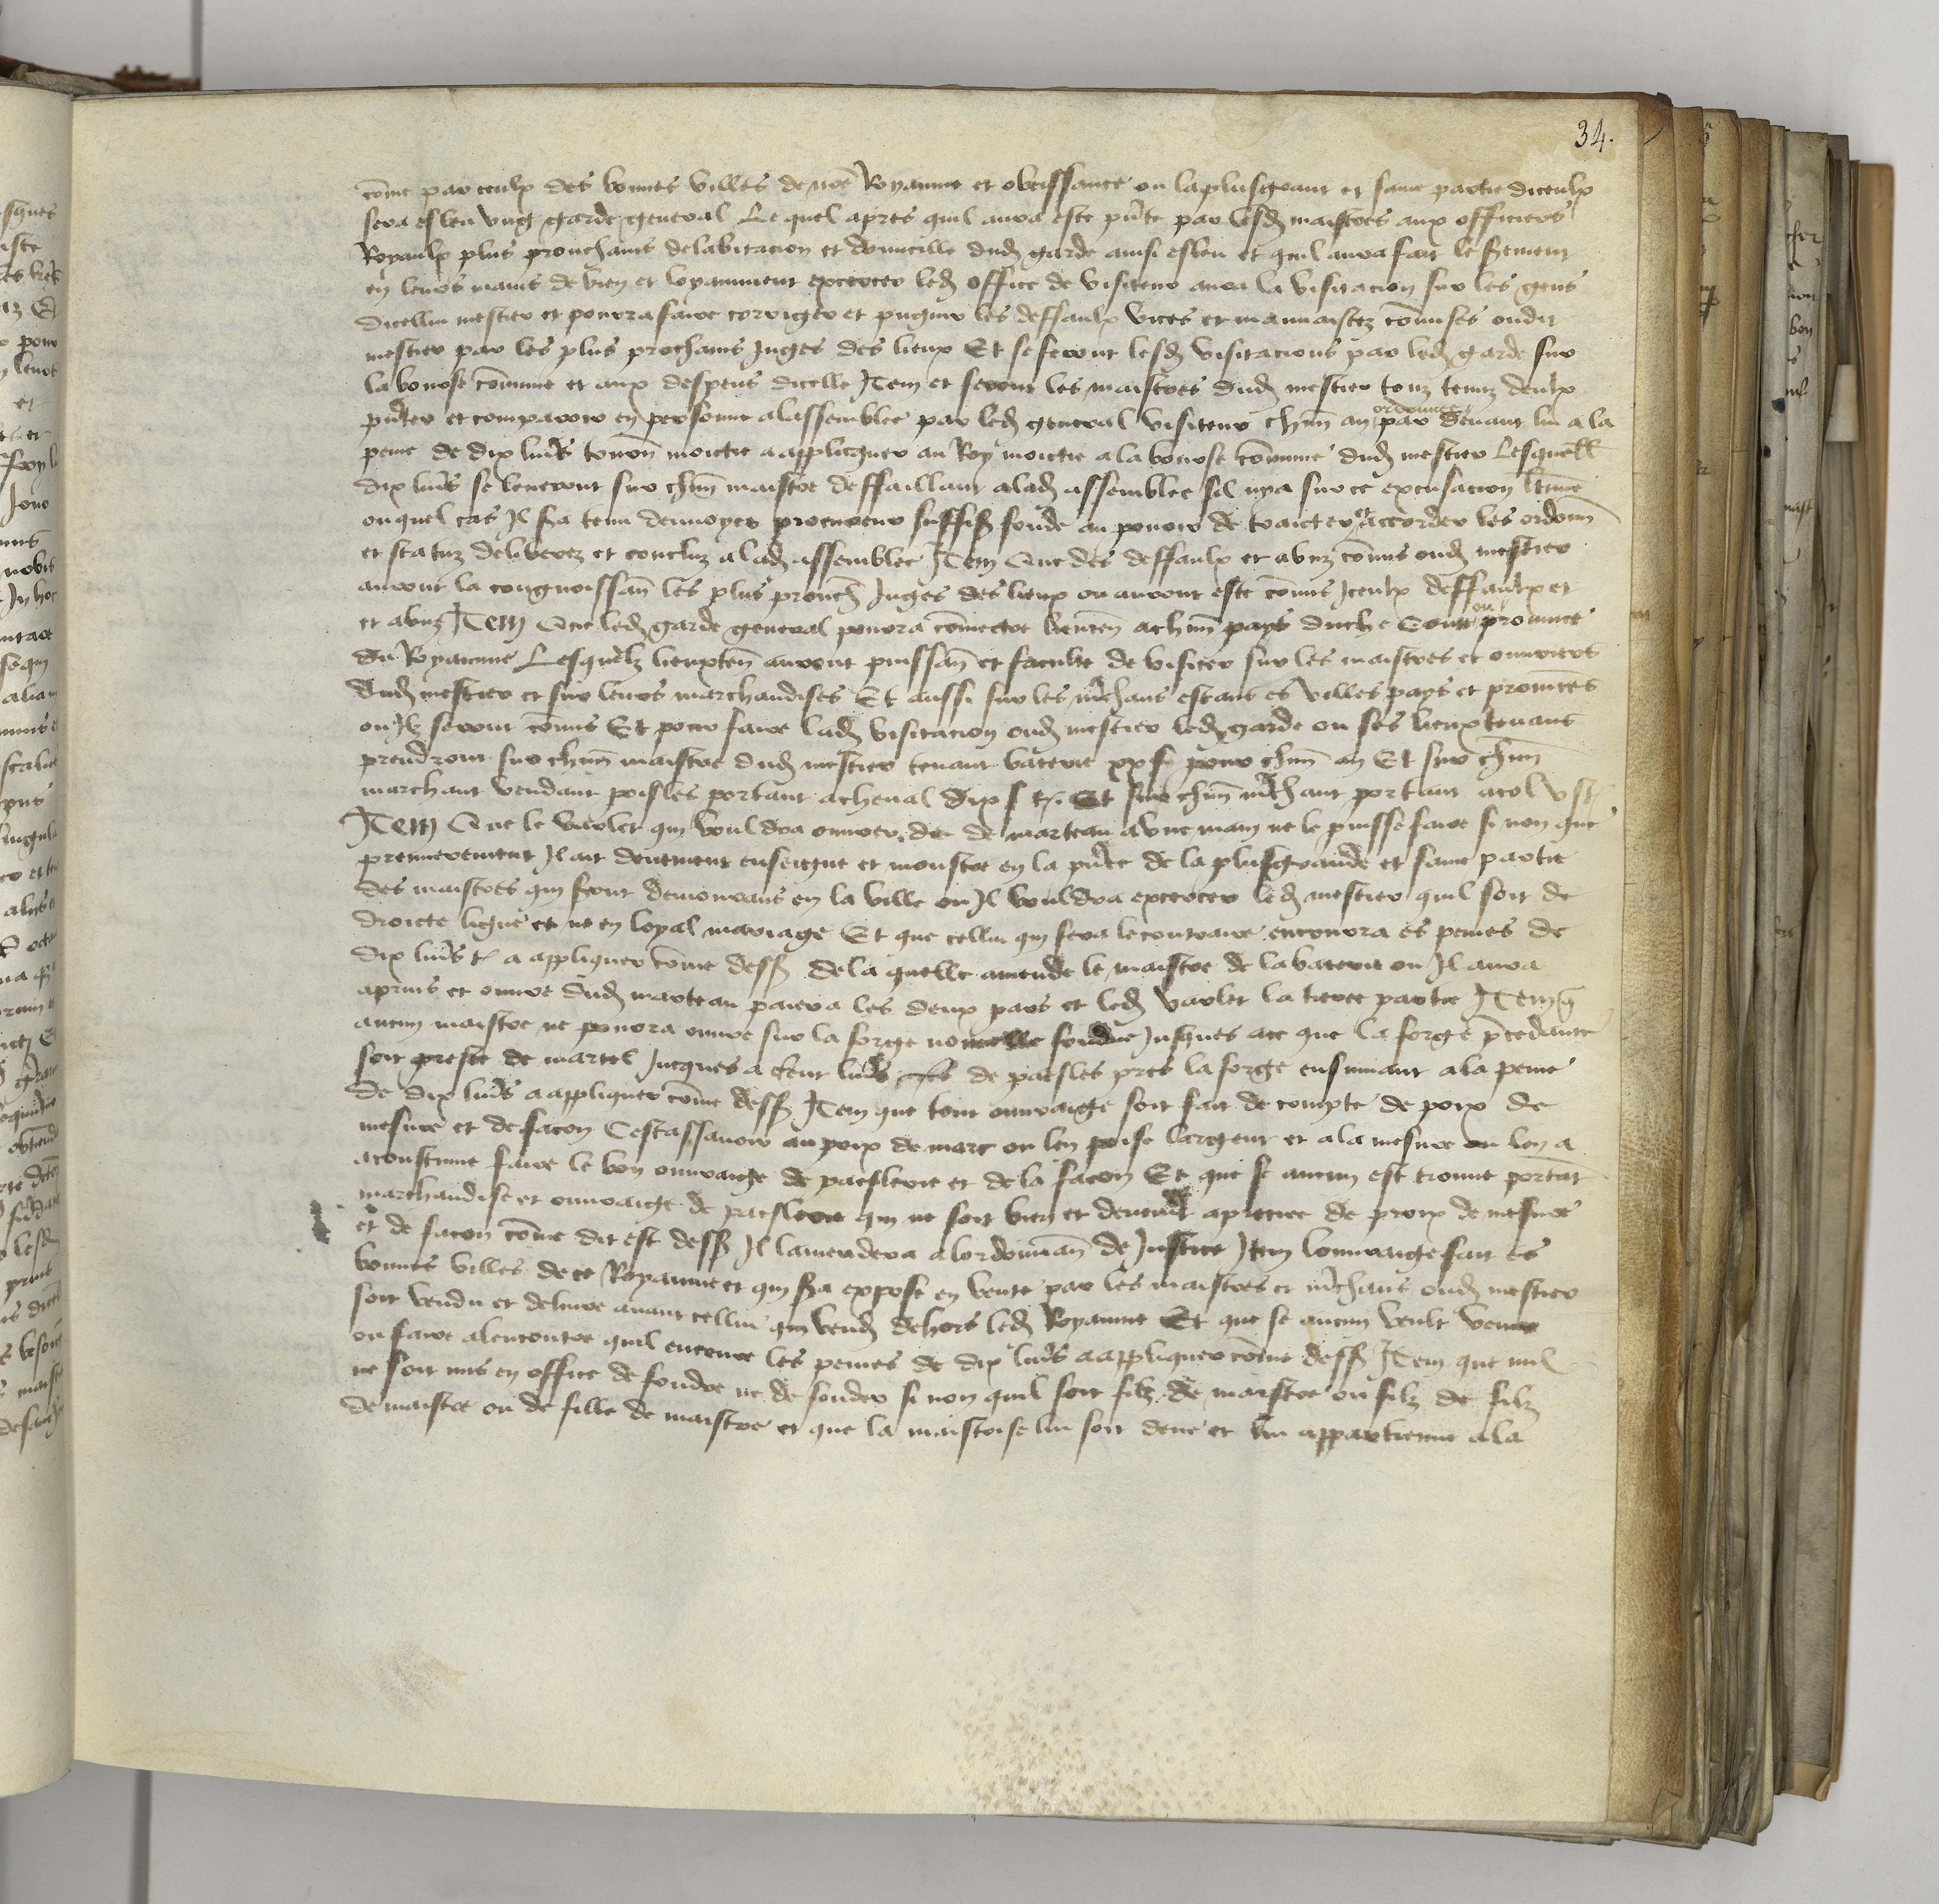 34.
cõme par ceulx des bonnes villes de nrẽ Royaume et obeissance ou laplusgrant et saine partie diceulx
sera esleu vng garde general Lequel apres quil aura este pñte par lesd maistres aux officiers
Royaulx plus prouchains delabitacion et domicille dud garde ainsi esleu et quil aura fait le sement
en leurs mains de bien et loyaument excercer led office de visiteur aura la visitacion sur les gens
dicellui mestier et pourra faire corriger et pugnir les deffaulx vices et mauuaistez cõmises oudit
mestier par les plus prochains Juges des lieux Et se feront lesd visitacions par led garde sur
la bourse cõmune et aux despens dicelle Item et seront les maistres dud mestier touz tenuz deulx
pñter et comparoir en personne alassemblee ordonnee par led general visiteur chũn an par deuant lui a la
peine de dix liures tourñ moictie a applicquer au Roy moictie a la bourse cõmune dud mestier Lesquell
dix liũs se leueront sur chũn maistre deffaillant alad assemblee sil nya sur ce excusacion ltime
ouquel cas Il sa tenu denuoyer procureur suffis fonde au pouoir de traicter et accorder les ordonñ
et statuz deliberez et concluz alad assemblee Item Que des deffaulx et abuz cõmis oud mestier
auront la congnoissañ les plus prouch Juges des lieux ou auront este cõmis Iceulx deffaulx et
et abuz Item Que led garde general pourra cõmectre lieuteñ achũn pays duche Conte ou prouince
du Royaume Lesquelz lieuxteñ auront puissañ et faculte de visiter sur les maistres et ouuriers
dud mestier et sur leurs marchandises Et aussi sur les mchans estans es villes pays et prouinces
ou Ilz seront cõmis Et pour faire lad visitacion oud mestier led garde ou ses lieuxtenans
prendront sur chũn maistre dud mestier tenant baterie xx s pour chũn an Et sur chũn
marchant vendant poisles portant acheual dix s t. Et sur chũn mchant portant acol v st
Item Que le varlet qui vouldra ouurer de marteau a vne main ne le puisse faire si non que
premierement Il ait deuement enseigne et monstre en la pñce de la plusgrande et saine partie
des maistres qui sont demourans en la ville ou Il vouldra excercer led mestier quil soit de
droicte ligne et ne en loyal mariage Et que cellui qui fera lecontraire encourra es peines de
dix liũs t a appliquer cõme dess de la quelle amende le maistre de labaterie ou Il aura
aprins et ouure dud marteau paiera les deux pars et led varlet la tierce partie Item q
aucun maistre ne pourra ouurer sur la forge nouuelle fondue Jusques ace que la forge pcedante
soit preste de martel Jucques a cent liũs de paesles pres la forge ensuiuant ala peine
de dix liũs a appliquer cõme dess Item que tout ouuraige soit fait de compte de poix de
mesure et de facon Cestassauoir au poix de marc ou len poise largent et ala mesure ou len a
acoustume faire le bon ouuraige de paeslerie et de la facon Et que se aucun est trouue portãt
marchandise et ouuraige de paeslerie qui ne soit bien et deuemt apreciee de proix de mesure
et de facon cõme dit est dess Il lamendera alordonnañ de Justice Item louuraige fait es
bonnes villes de ce Royaume et qui sa expose en vente par les maistres et mchans oud mestier
soit vendu et deliure auant cellui qui vend dehors led Royaume Et que se aucun veult venir
ou faire alencontre quil encoure les peines de dix liũs a appliquer cõme dess Item que nul
ne soit mis en office de fondre ne de fonder si non quil soit filz de maistre ou filz de filz
de maistre ou de fille de maistre et que la maistrise lui soit deue et lui appartienne ala